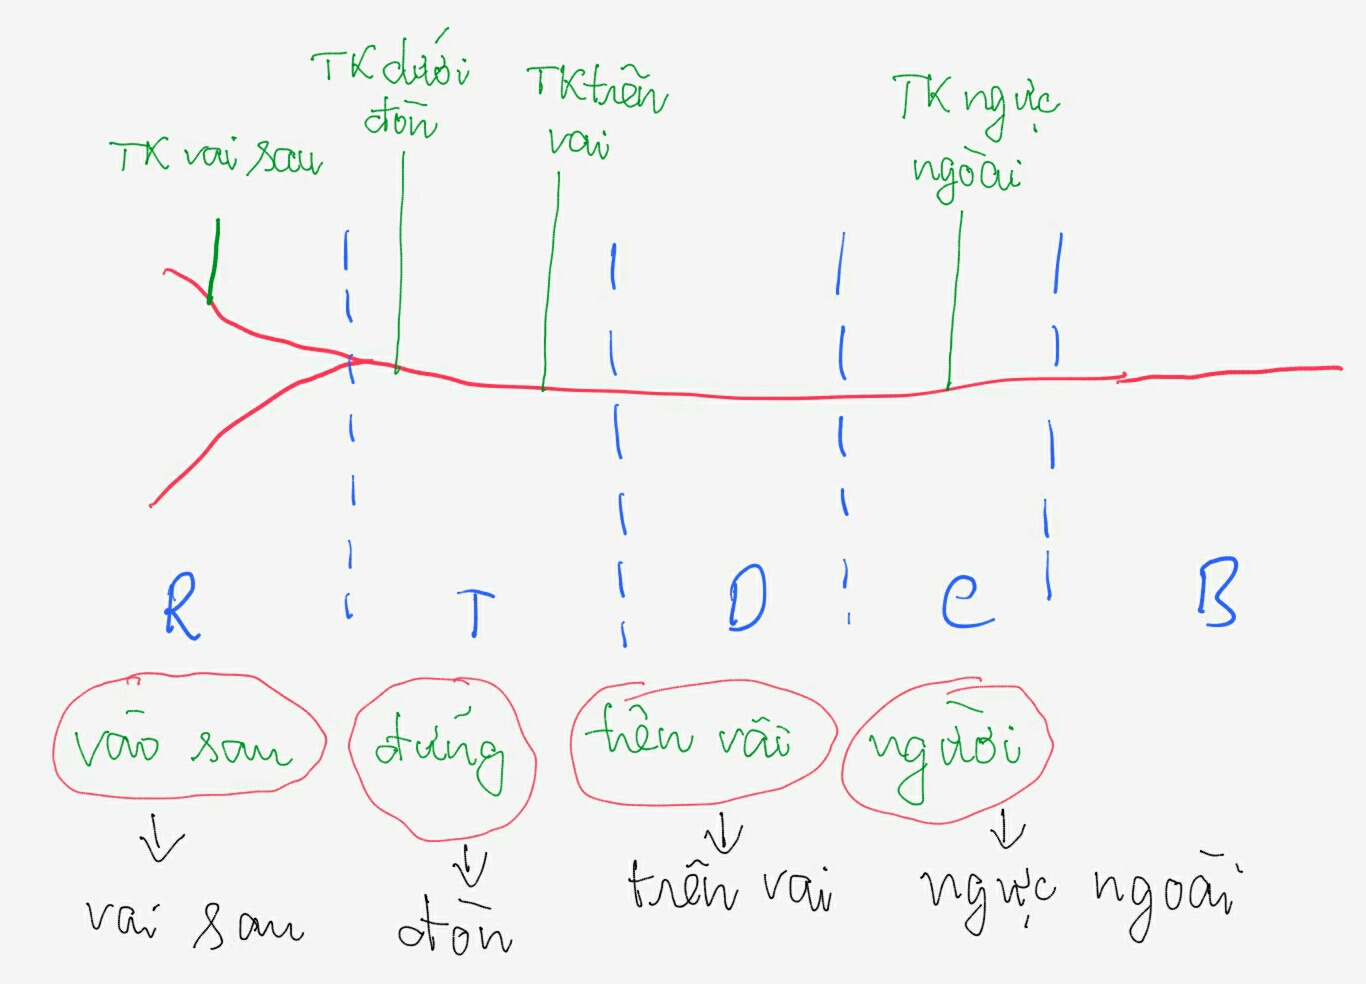 TK dưới
đòn
TK trên
vai
TK ngực
ngoài
TK vai sau
R T D C B
vào sau đứng trên vai người
vai sau đòn trên vai ngực ngoài